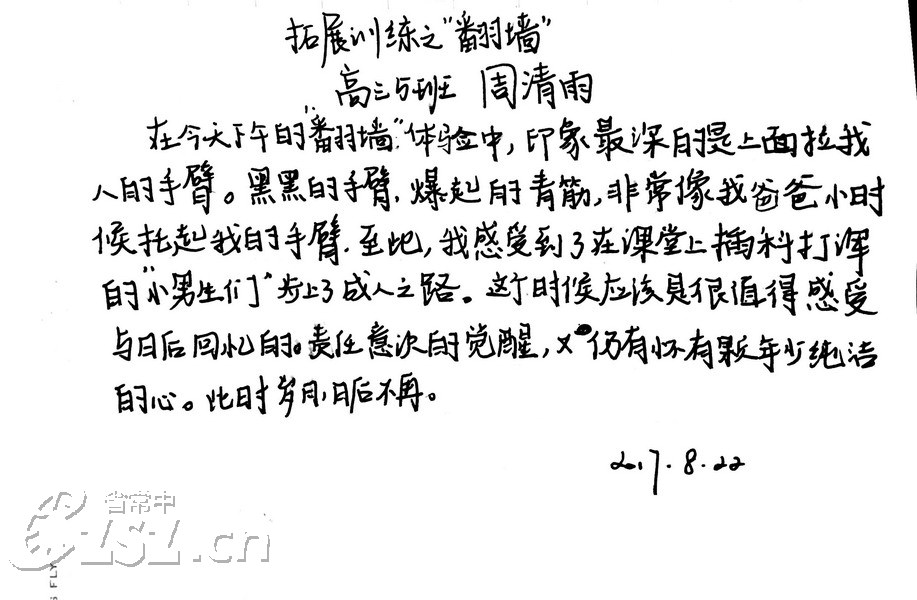 拓展训练之"翻墙"
高三5班 周清雨
在今天下午的"翻墙"体验中,印象最深的是上面拉我
人的手臂。黑黑的手臂,爆起的青筋,非常像我爸爸小时
候托起我的手臂.至此,我感受到了在课堂上插科打浑
的"小男生们"步上了成人之路。这个时候应该是很值得感受
与日后回忆的。责任意次的觉醒,又仍有怀有颗年少纯洁
的心。此时岁月,日后不再。
2017.8.22
省常中
CZSZ.cn
FLY